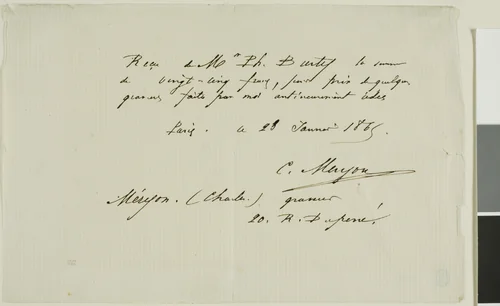 Reçu de Mr Ph. Burty la somme
de vingt-cinq francs, pour prix de quelques
gravures faites par moi antérieurement
Paris. ce 28 Janvier 1865.
C. Meryon
Méryon. (Charles) graveur
20. R. Duperré.